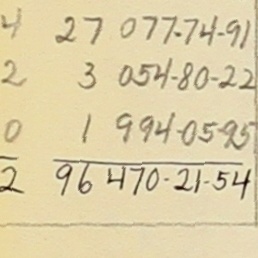 4 27 077-74-91
2 3 054-80-22
0 1 994-05-95
2 96 470-21-54